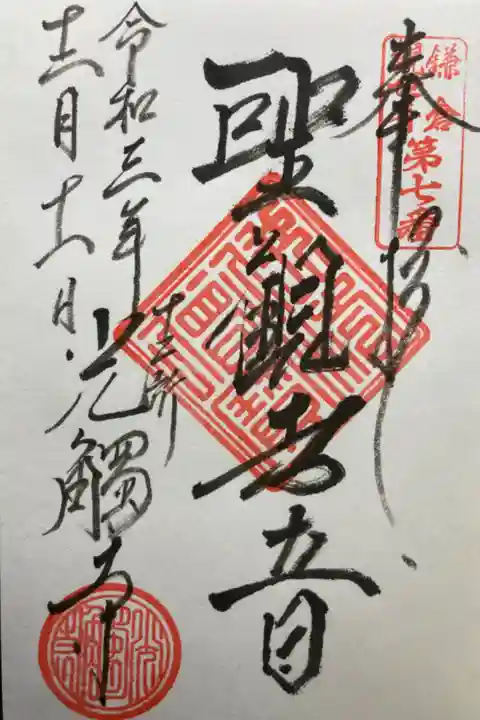 鎌倉
第七番
奉拝
聖觀世音
十二所
光觸寺
令和三年
十二月十一日